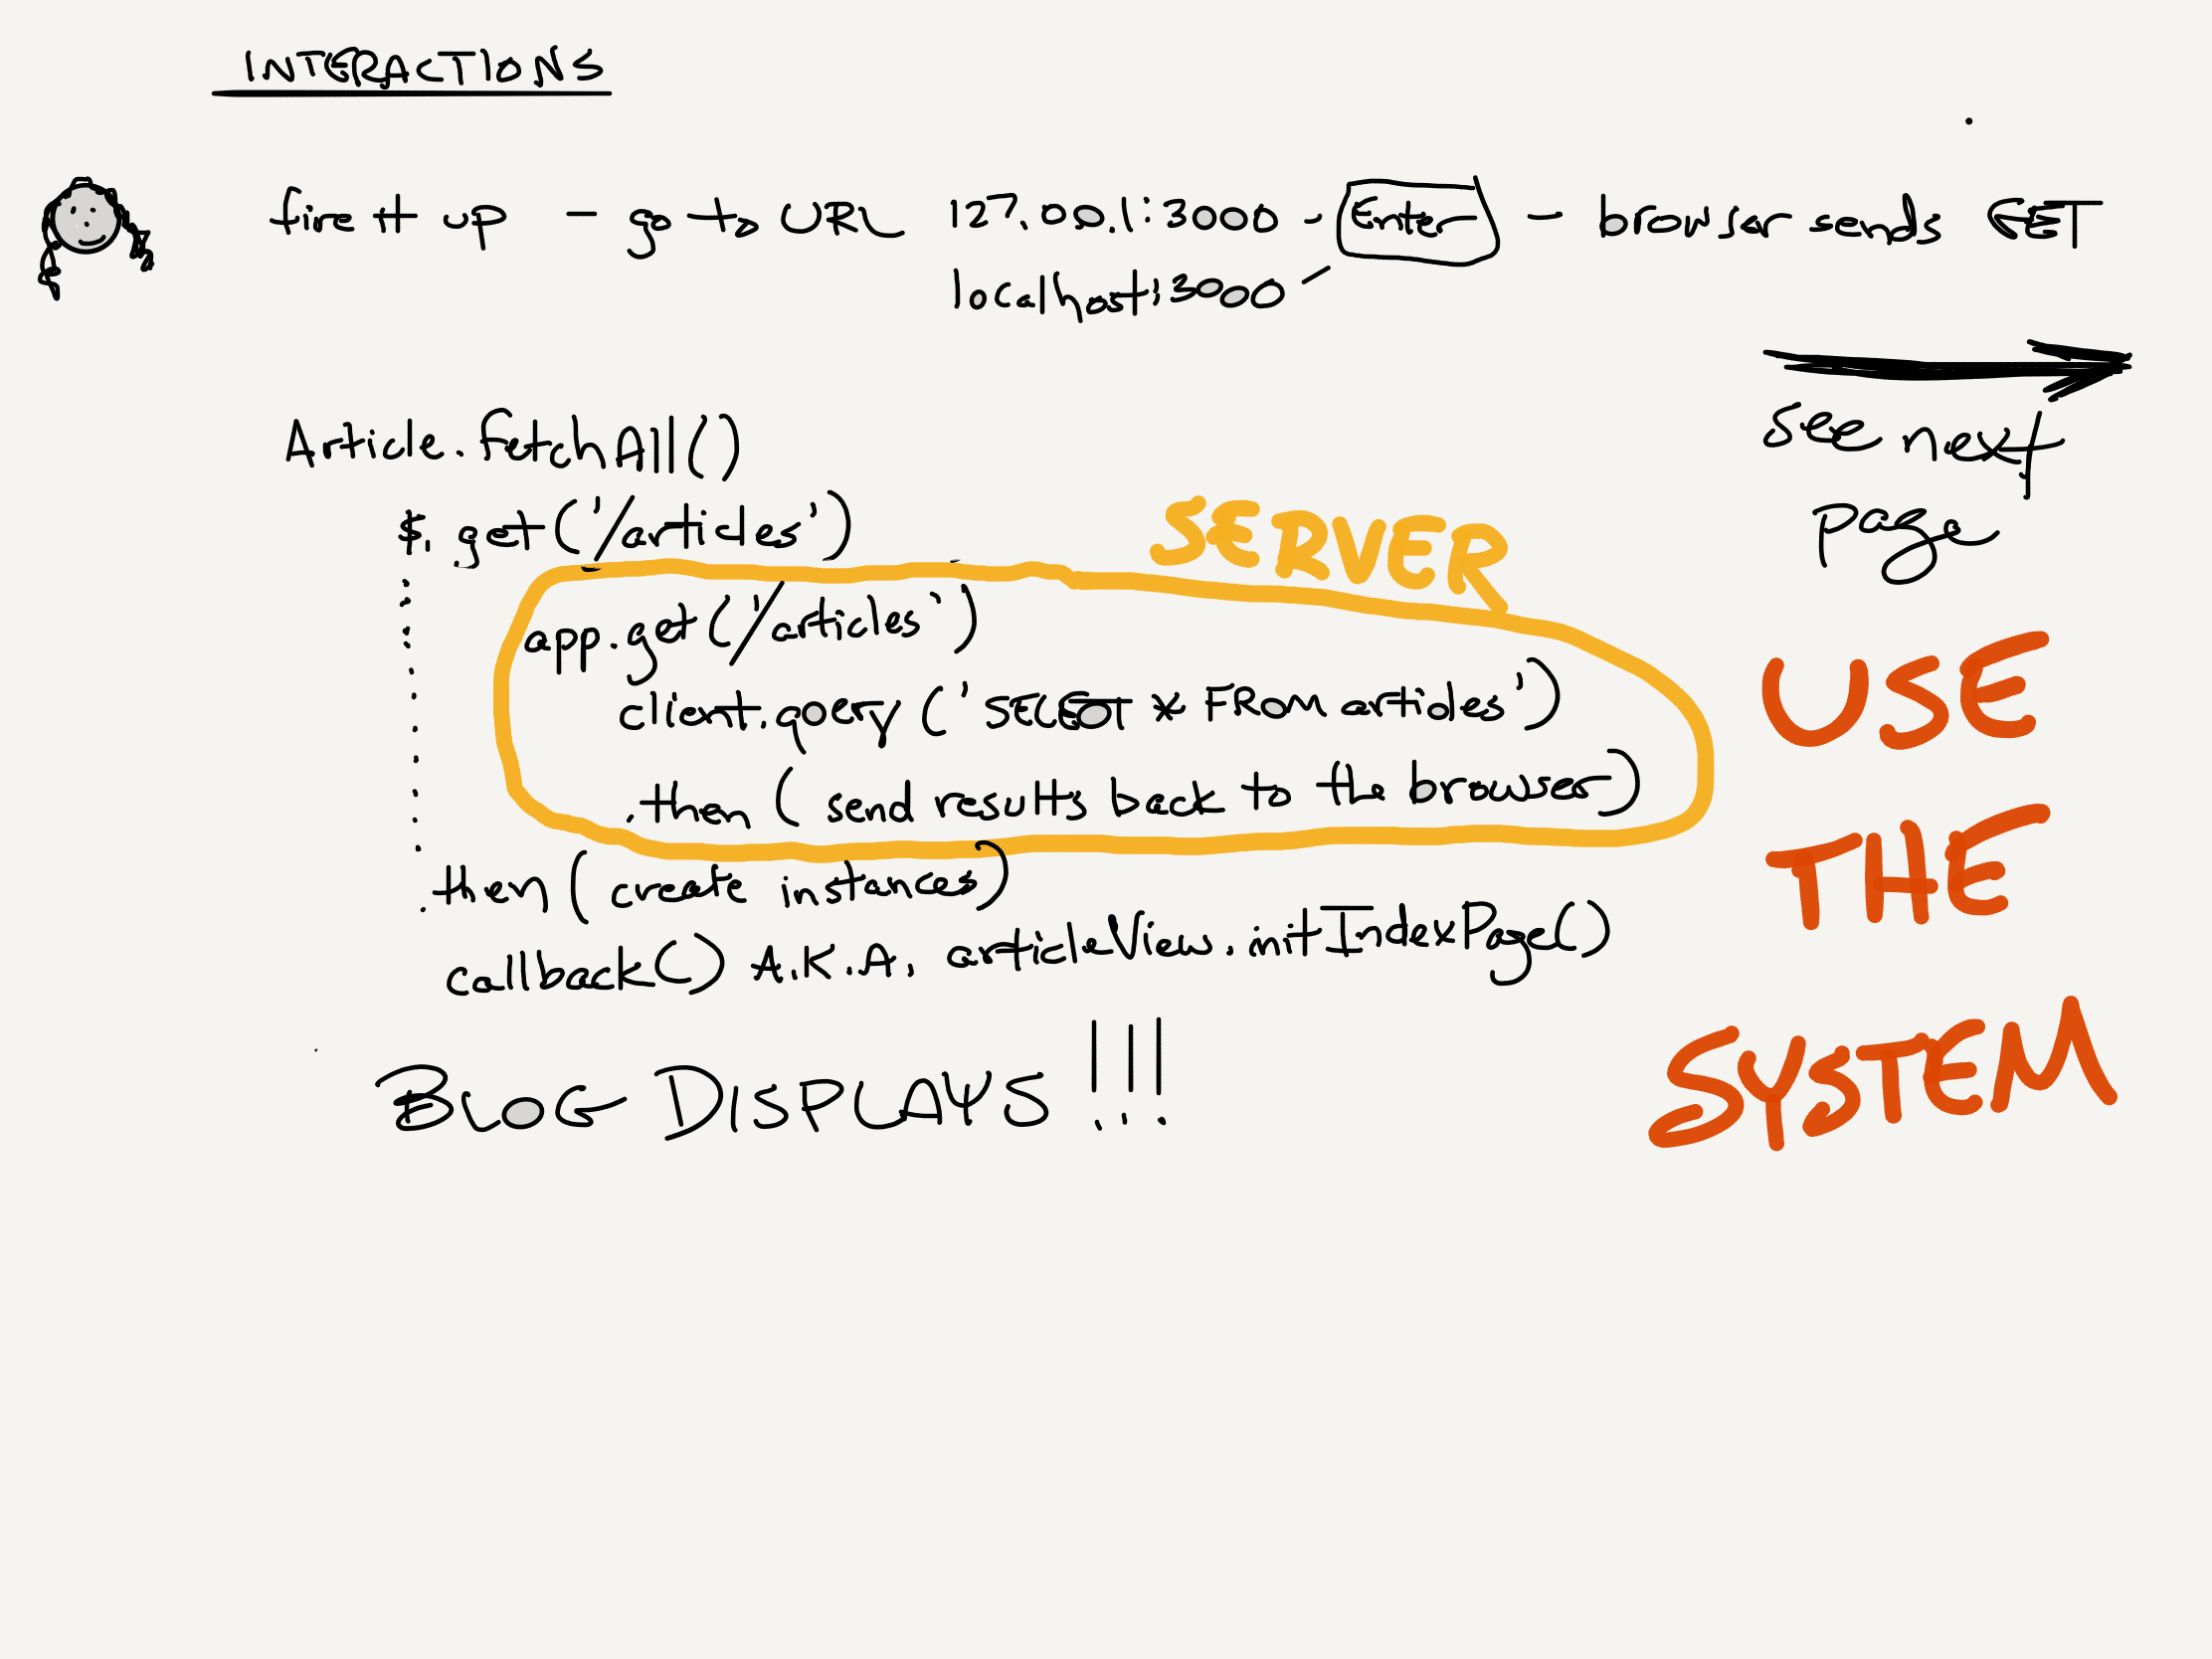 INTERACTIONS
fire it up - go to URL 127.00.1:3000 - Enter - browser sends GET
localhost:3000
see next
page
Article.fetchAll()
$.get('/articles')
SERVER
app.get('/articles')
client.query('SELECT * FROM articles')
.then (send results back to the browser)
.then (create instances)
callback() A.K.A. articleView.initIndexPage()
BLOG DISPLAYS !!!
USE
THE
SYSTEM